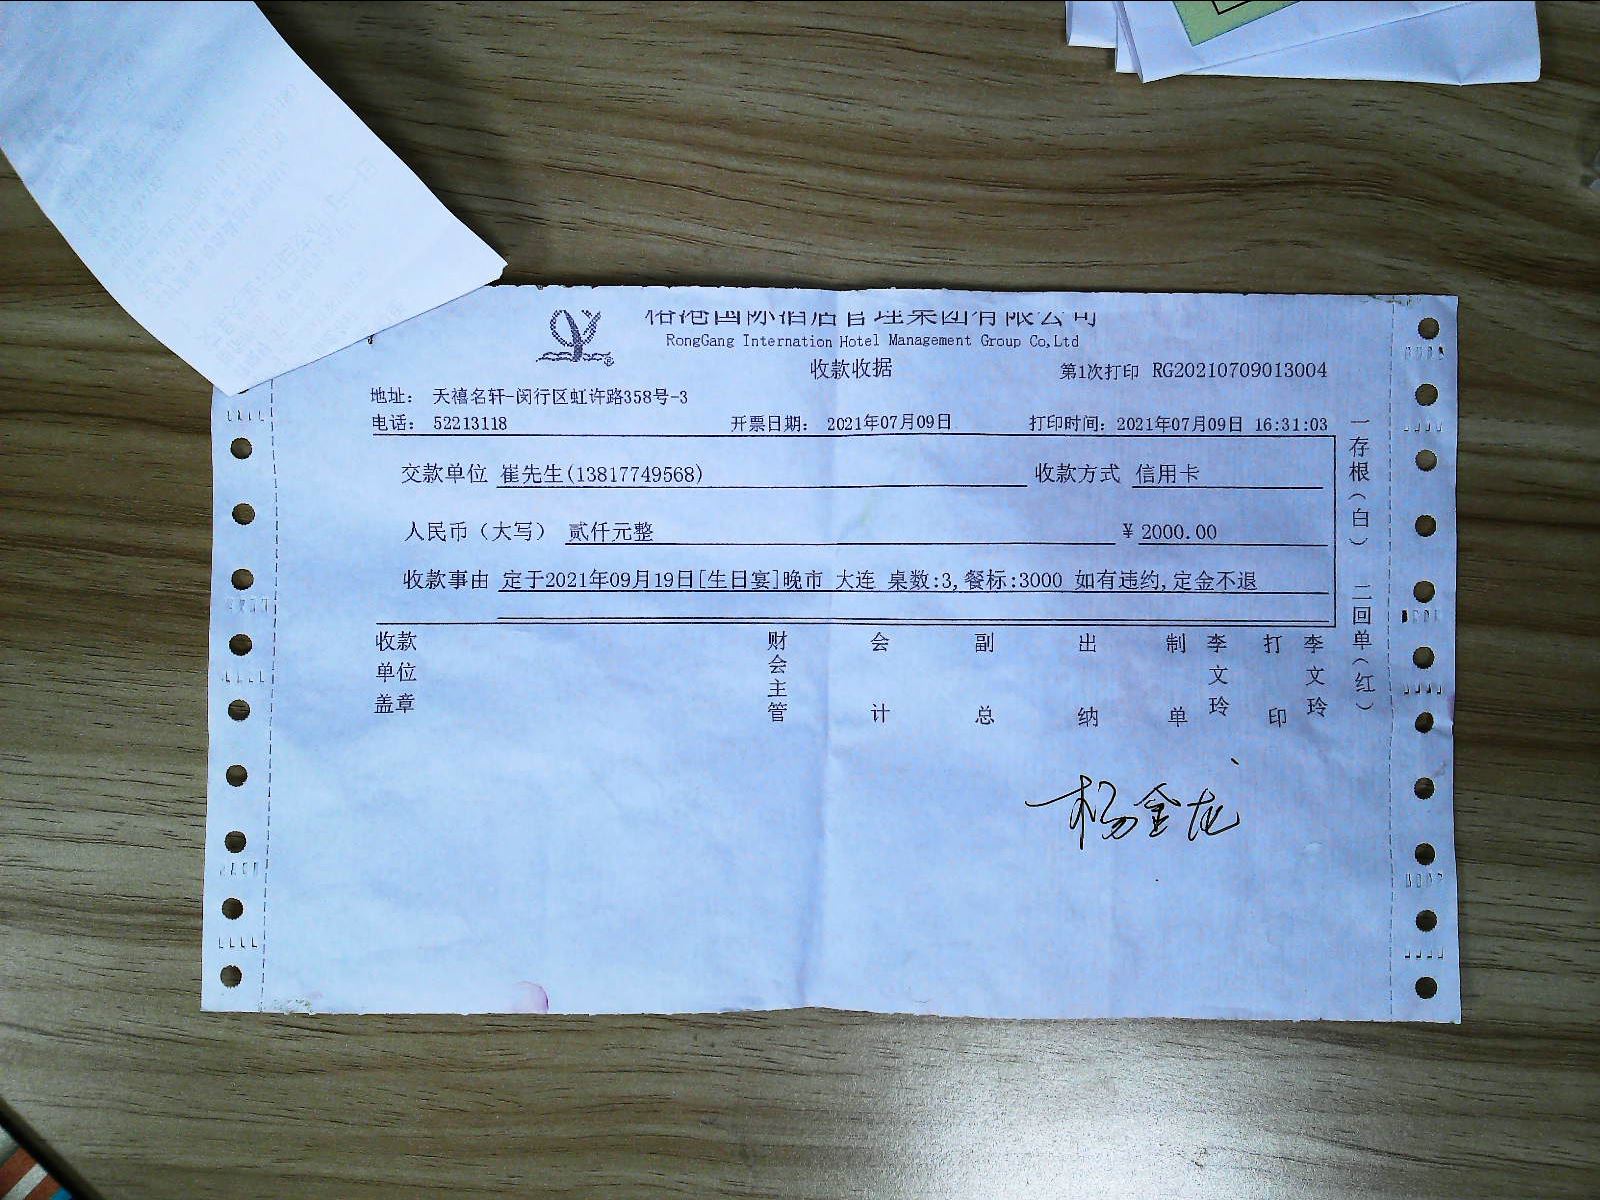 榕港国际酒店管理集团有限公司
RongGang Internation Hotel Management Group Co,Ltd
收款收据
第1次打印 RG20210709013004
地址： 天禧名轩-闵行区虹许路358号-3
电话： 52213118 开票日期： 2021年07月09日 打印时间：2021年07月09日 16:31:03
交款单位 崔先生(13817749568) 收款方式 信用卡
人民币（大写） 贰仟元整 ¥ 2000.00
收款事由 定于2021年09月19日[生日宴]晚市 大连 桌数:3,餐标:3000 如有违约,定金不退
收款单位盖章 财会主管 会计 副总 出纳 制单 李文玲 打印 李文玲
一存根（白） 二回单（红）
杨金龙